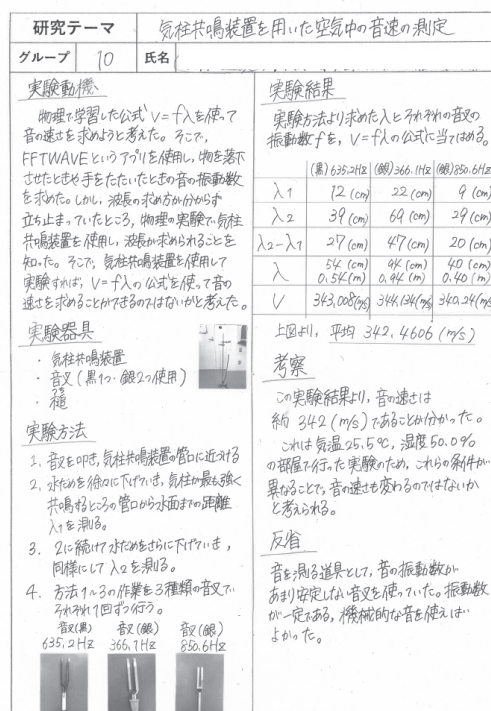 研究テーマ 気柱共鳴装置を用いた空気中の音速の測定
グループ 10 氏名
実験動機
物理で学習した公式 V=fλを使って
音の速さを求めようと考えた。そこで、
FFTWAVEというアプリを使用し、物を落下
させたときや手をたたいたときの音の振動数
を求めた。しかし、波長の求め方が分からず
立ち止まっていたところ、物理の実験で気柱
共鳴装置を使用し、波長が求められることを
知った。そこで、気柱共鳴装置を使用して
実験すれば、V=fλの公式を使って音の
速さを求めることができるのではないかと考えた。
実験器具
・気柱共鳴装置
・音叉(黒1つ・銀2つ使用)
・槌
実験方法
1. 音叉を叩き、気柱共鳴装置の管口に近づける
2. 水だめを徐々に下げていき、気柱が最も強く
共鳴するところの管口から水面までの距離
λ1を測る。
3. 2に続けて水だめをさらに下げていき、
同様にしてλ2を測る。
4. 方法1〜3の作業を3種類の音叉で
それぞれ1回ずつ行う。
音叉(黒) 音叉(銀) 音叉(銀)
635.2Hz 366.1Hz 850.6Hz
実験結果
実験方法より求めたλとそれぞれの音叉の
振動数fを、V=fλの公式に当てはめる。
(黒)635.2HZ (銀)366.1HZ (銀)850.6HZ
λ1 12(cm) 22(cm) 9(cm)
λ2 39(cm) 69(cm) 29(cm)
λ2-λ1 27(cm) 47(cm) 20(cm)
λ 54(cm) 94(cm) 40(cm)
0.54(m) 0.94(m) 0.40(m)
V 343.008(m/s) 344.134(m/s) 340.24(m/s)
上図より、平均 342.4606(m/s)
考察
この実験結果より、音の速さは
約342(m/s)であることが分かった。
これは気温25.5℃、湿度50.0%
の部屋で行った実験のため、これらの条件が
異なることで、音の速さも変わるのではないか
と考えられる。
反省
音を測る道具として、音の振動数が
あまり安定しない音叉を使っていた。振動数
が一定である、機械的な音を使えば
よかった。